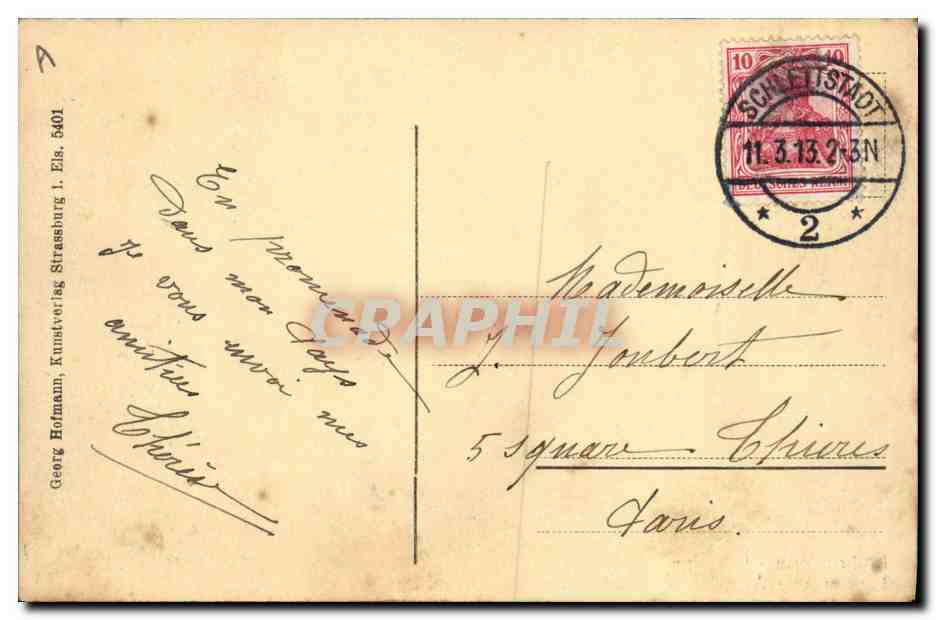 A
Georg Hofmann, Kunstverlag Strassburg i. Els. 5401
En promenade
dans mon pays
je vous envoi mes
amitiés
Thérèse
10 10
DEUTSCHES REICH
SCHLETTSTADT
11.3.13.2-3N
* 2 *
Mademoiselle
J. Joubert
5 square Thiers
Paris.
CRAPHIL